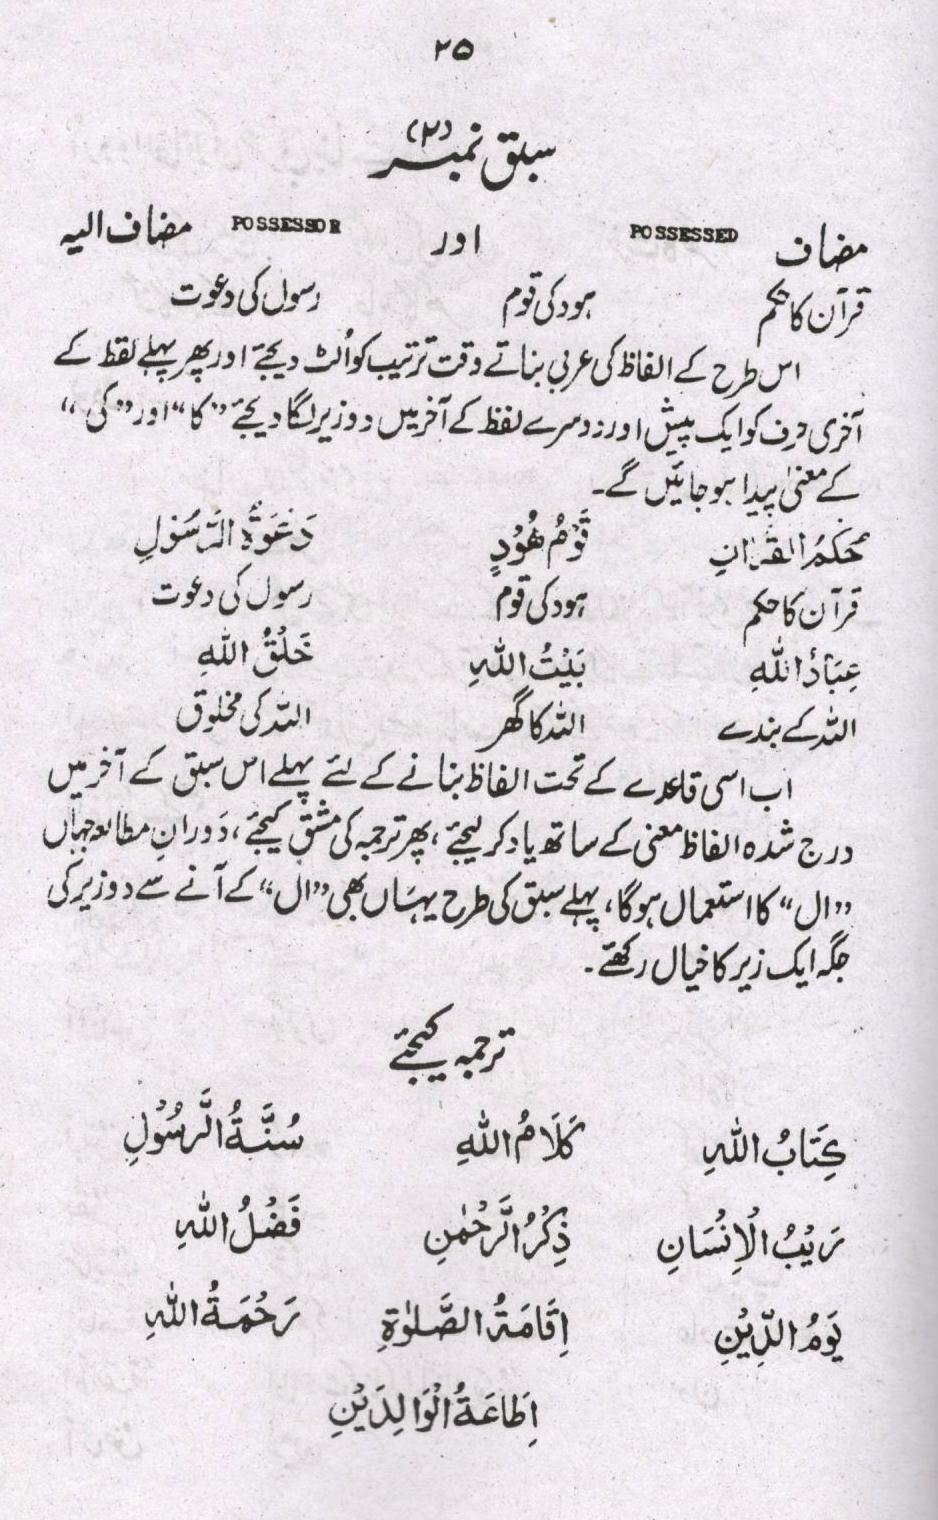 ۲۵
سبق نمبر (۲)
مضاف POSSESSED اور POSSESSOR مضاف الیہ
قرآن کا حکم ہود کی قوم رسول کی دعوت
اس طرح کے الفاظ کی عربی بناتے وقت ترتیب کو اُلٹ دیجئے اور پھر پہلے لفظ کے
آخری حرف کو ایک پیش اور دوسرے لفظ کے آخر میں دو زیر لگا دیجئے ”کا“ اور ”کی“
کے معنیٰ پیدا ہو جائیں گے۔
حُکْمُ الْقُرْاٰنِ قَوْمُ ھُوْدٍ دَعْوَۃُ الرَّسُوْلِ
قرآن کا حکم ہود کی قوم رسول کی دعوت
عِبَادُ اللّٰہِ بَیْتُ اللّٰہِ خَلْقُ اللّٰہِ
اللہ کے بندے اللہ کا گھر اللہ کی مخلوق
اب اسی قاعدے کے تحت الفاظ بنانے کے لئے پہلے اس سبق کے آخر میں
درج شدہ الفاظ معنی کے ساتھ یاد کر لیجئے، پھر ترجمہ کی مشق کیجئے، دَورانِ مطالعہ جہاں
”ال“ کا استعمال ہوگا، پہلے سبق کی طرح یہاں بھی ”ال“ کے آنے سے دو زیر کی
جگہ ایک زیر کا خیال رکھئے۔
ترجمہ کیجئے
کِتَابُ اللّٰہِ کَلَامُ اللّٰہِ سُنَّۃُ الرَّسُوْلِ
رَیْبُ الْاِنْسَانِ ذِکْرُ الرَّحْمٰنِ فَضْلُ اللّٰہِ
یَوْمُ الدِّیْنِ اِقَامَۃُ الصَّلٰوۃِ رَحْمَۃُ اللّٰہِ
اِطَاعَۃُ الْوَالِدَیْنِ